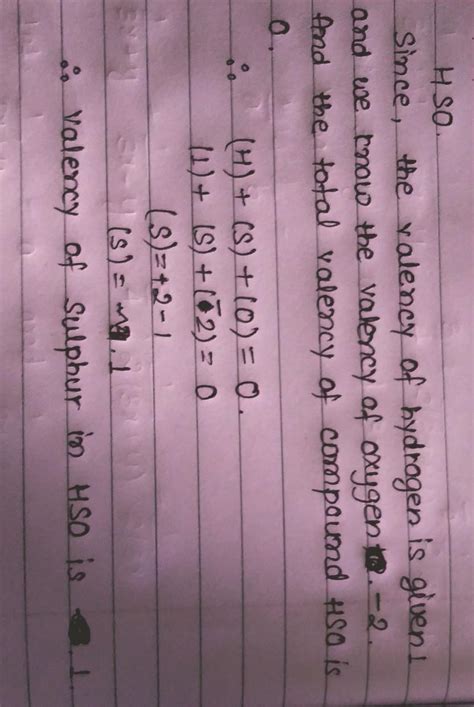 HSO.
Since, the valency of hydrogen is given 1
and we know the valency of oxygen -2.
And the total valency of compound HSO is
0.
∴ (H) + (S) + (O) = 0.
(1) + (S) + (-2) = 0
(S) = +2 - 1
(S) = 1
∴ valency of sulphur in HSO is 1.